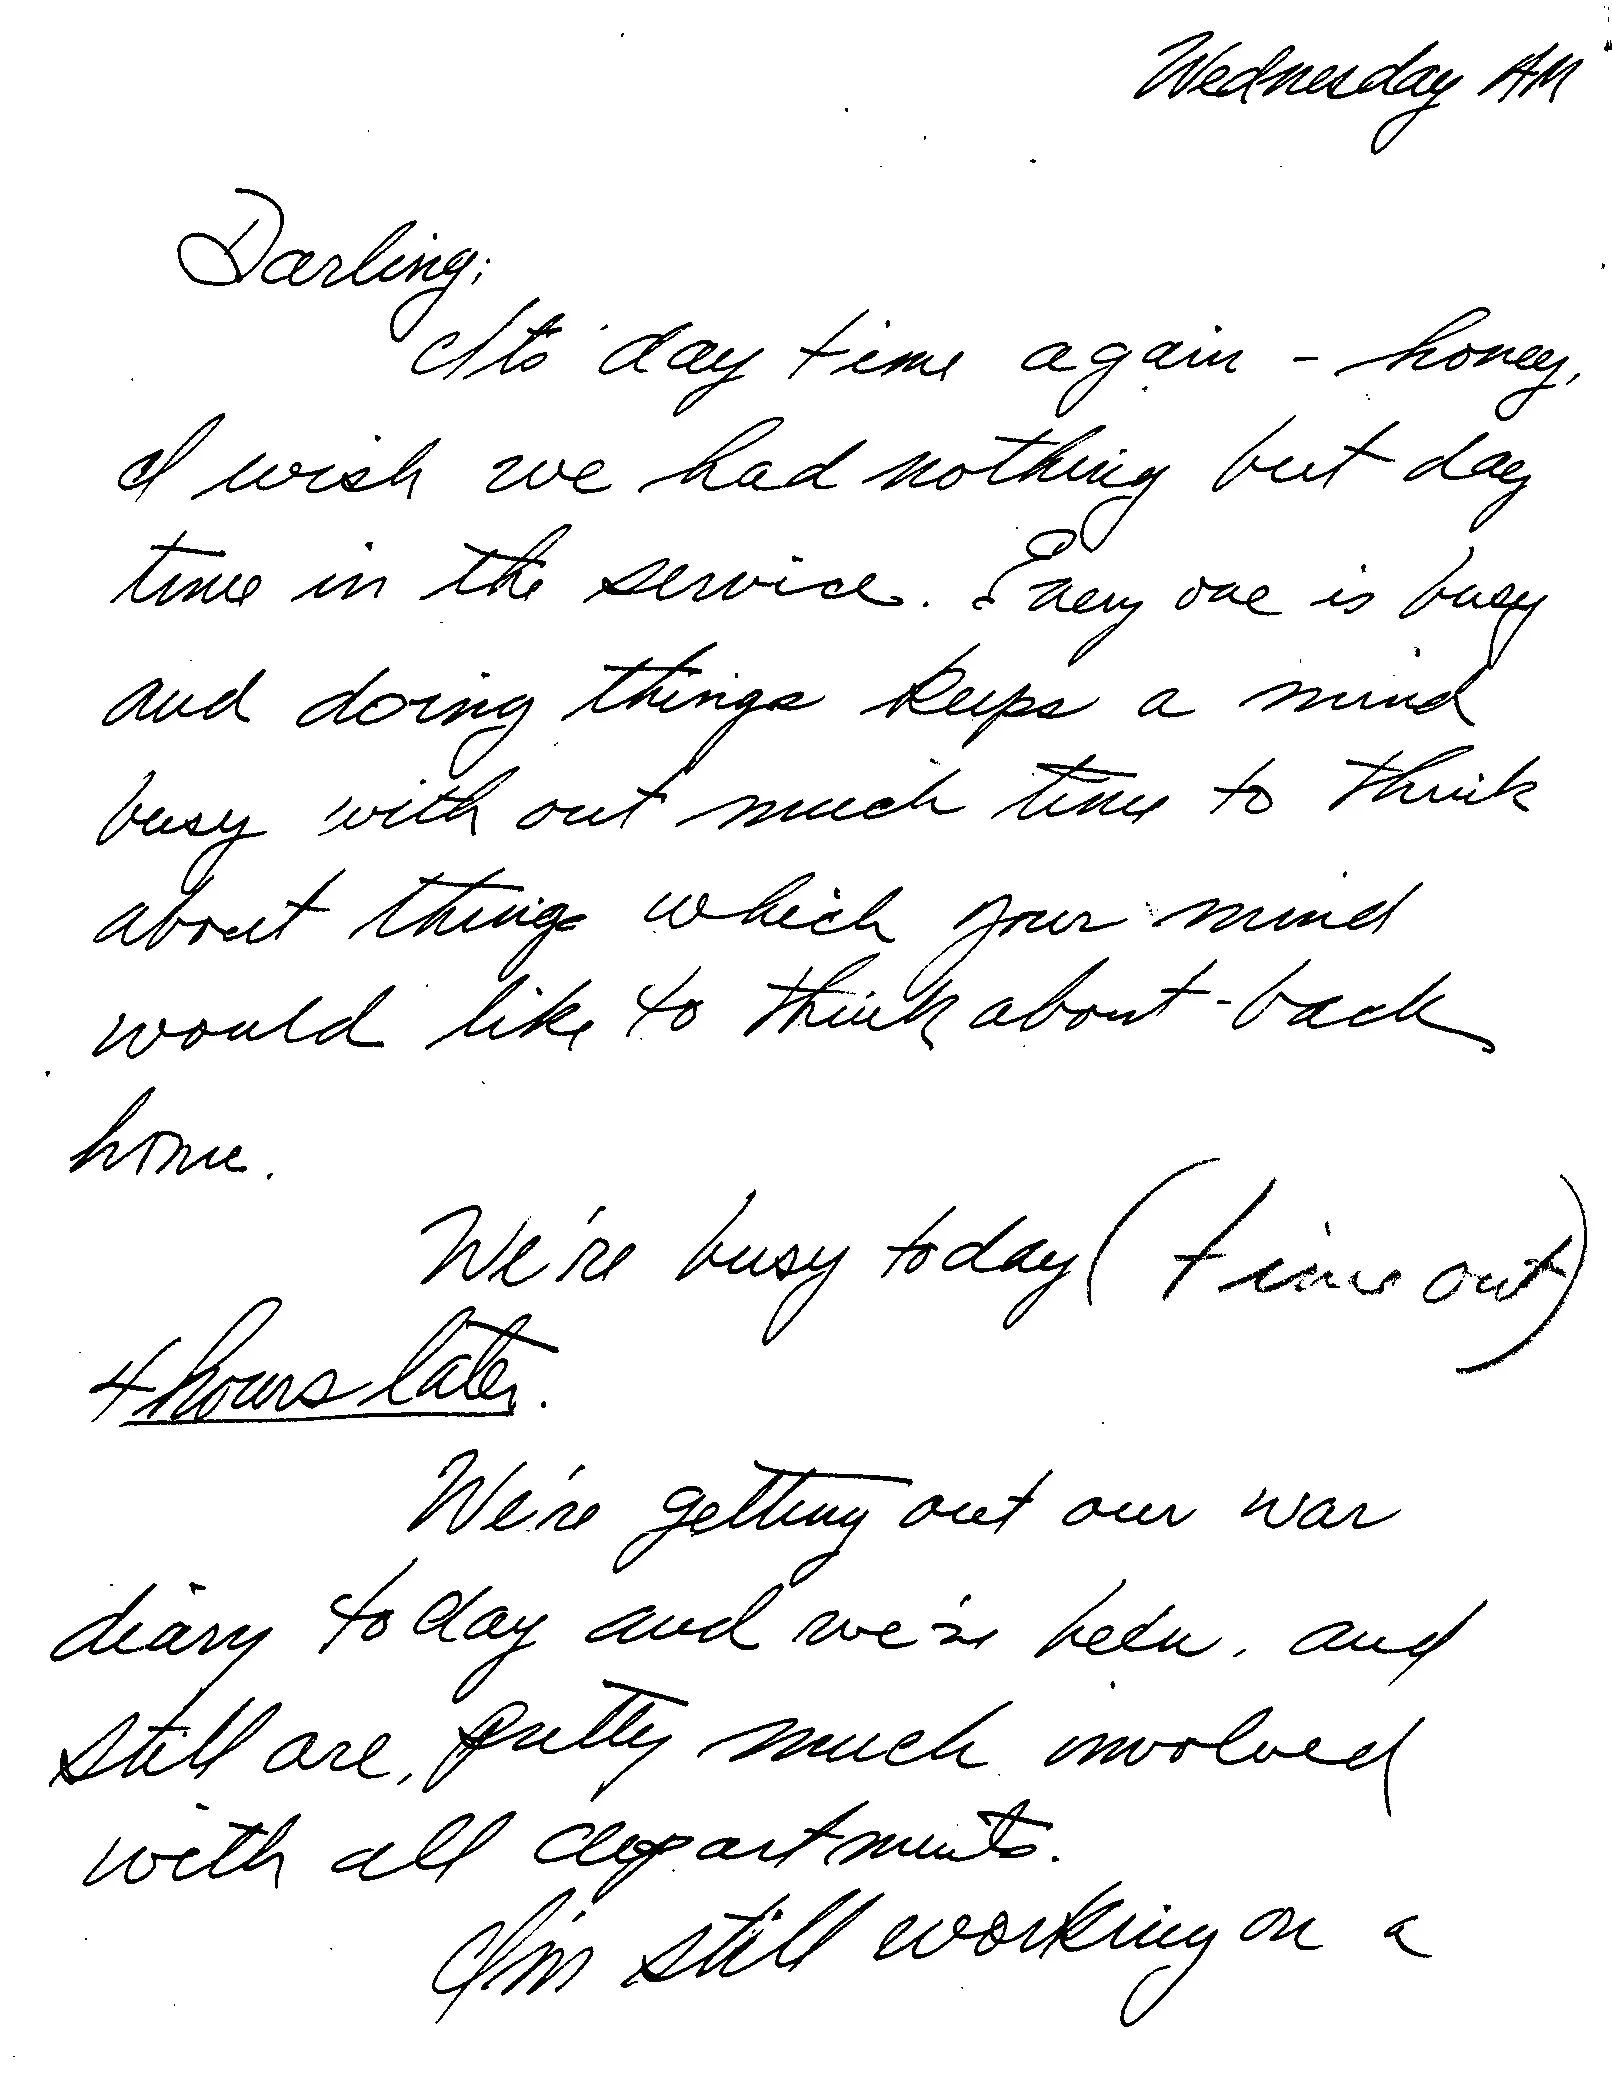 Wednesday AM
Darling;
It's day time again - honey,
I wish we had nothing but day
time in the service. Every one is busy
and doing things keeps a mind
busy with out much time to think
about things which your mind
would like to think about - back
home.
We're busy today (time out)
4 hours later.
We're getting out our war
diary today and we've been, and
still are, pretty much involved
with all departments.
I'm still working on a